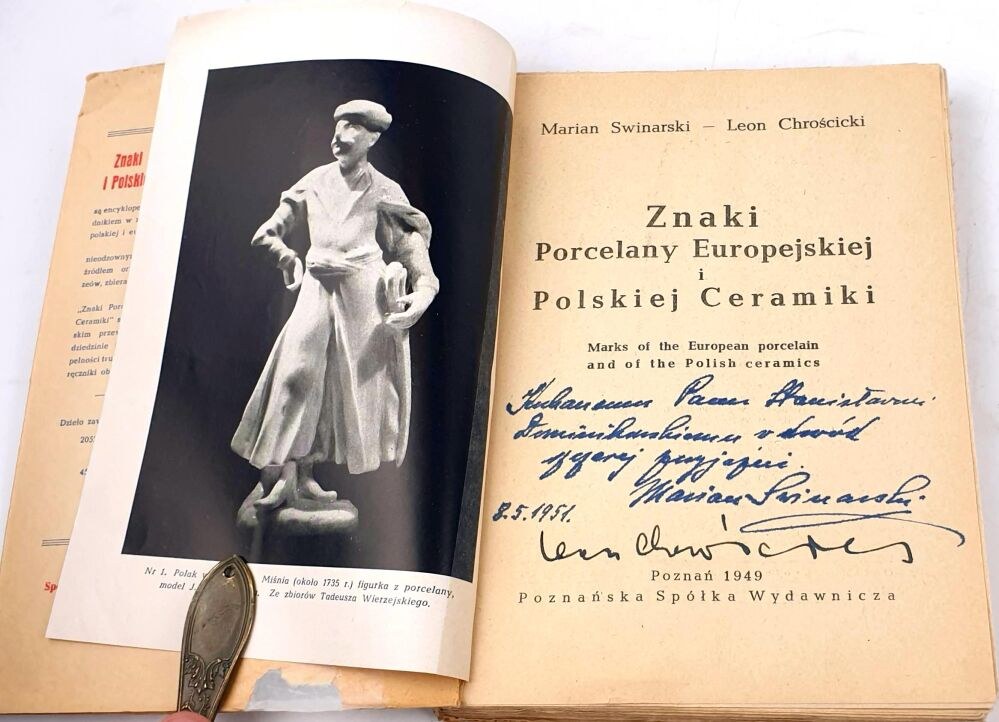 Znaki
i Polski
są encyklope
dnikiem w
polskiej i eu
nieodzownym
źródłem or
zeów, zbiera
„Znaki Porc
Ceramiki" s
skim przew
dziedzinie
pełności tru
ręczniki ob
Dzieło zaw
205
45
Sp
Nr 1. Polak Miśnia (około 1735 r.) figurka z porcelany,
model J. Ze zbiorów Tadeusza Wierzejskiego.
Marian Swinarski – Leon Chrościcki
Znaki
Porcelany Europejskiej
i
Polskiej Ceramiki
Marks of the European porcelain
and of the Polish ceramics
Kochanemu Panu Stanisławowi
Dominikowskiemu w dowód
szczerej przyjaźni.
Marian Swinarski
8.5.1951.
Leon Chrościcki
Poznań 1949
Poznańska Spółka Wydawnicza